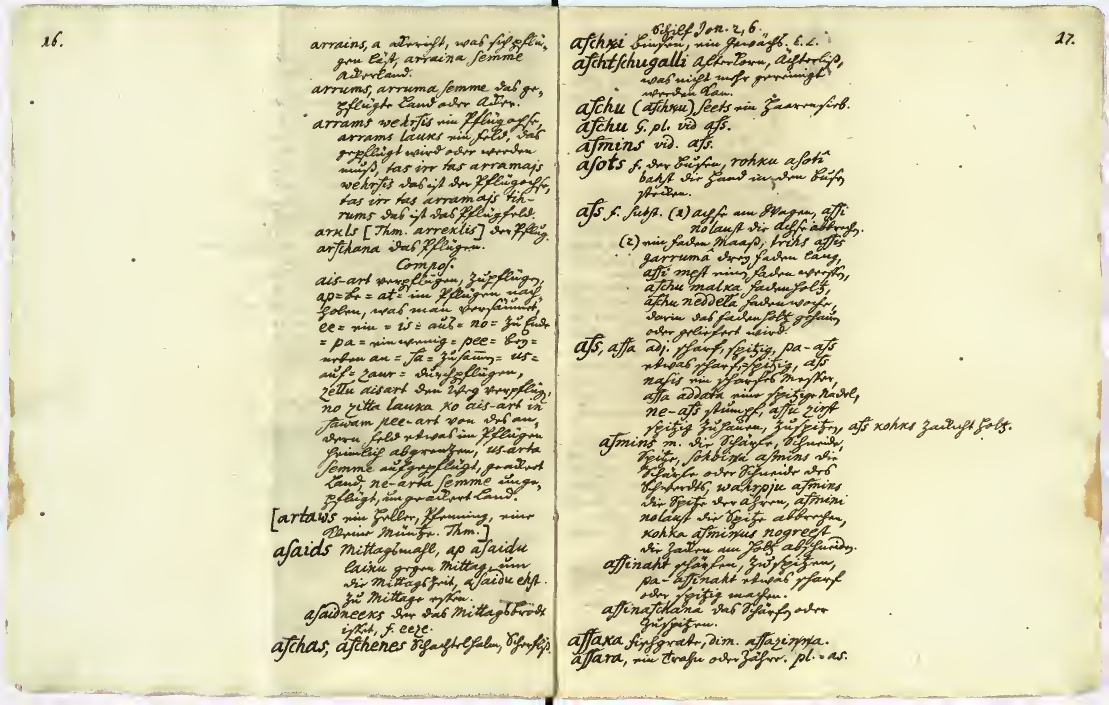 26.
arrains, a adericht, was sich pflü-
gen läst, arraina semme
Ackerland.
arrums, arruma semme das ge-
pflügte Land oder Acker.
arrams wehrsis ein Pflugochse,
arrams lauks ein feld, das
gepflügt wird oder werden
muß, tas irr tas arramajs
wehrsis das ist der Pflugochse,
tas irr tas arramajs tih-
rums das ist das Pflügfeld.
arkls [Thm. arreklis] der Pflug.
arschana das Pflügen.
Compos.
ais-art verpflügen, zupflügen,
ap= be= at= im Pflügen nach-
holen, was man versäumet,
ee= ein= is= aus= no= zu Ende
= pa= ein wenig= pee= bey=
neben an= sa= zusamm= us=
auf= zaur= durchpflügen,
zellu aisart den Weg verpflüg,
no zitta lauka ko ais-art in
sawam pee-art von des an-
dern feld etwas im Pflügen
heimlich abgrentzen, us-arta
semme aufgepflügt, geackert
Land, ne-arta semme unge-
pflügt, ungeackert Land.
[artaws ein Heller, Pfenning, eine
kleine Müntze. Thm.]
asaids Mittagsmahl, ap asaidu
laiku gegen Mittag, um
die Mittagszeit, asaidu ehst
zu Mittage essen.
asaidneeks der das Mittagsbrodt
isset, f. eeze.
aschas, aschenes Schachtelhalm, Scherfliß
27.
Schilf Jon. 2, 6.
aschki binsen, ein Gewächs. E. L.
aschtschugalli Afterkorn, Achterliß,
was nicht mehr gereinigt
werden kan.
aschu (aschku) seets ein Haarensieb.
aschu G. pl. vid ass.
asmins vid. ass.
asots f. der Busen, rohku asotî
bahst die Hand in den busen
stecken.
ass f. subst. (1) achse am Wagen, assi
nolaust die Achse abbrech.
(2) ein faden Maaß, trihs assis
garrumâ drey faden lang,
assi mest einen faden werfen,
aschu malka fadenholtz,
aschu neddeļa fadenwoche,
darin das fadenholtz gehaun
oder geliefert wird.
ass, assa adj. scharf, spitzig, pa-ass
etwas scharf, spitzig, ass
nasis ein scharfes Messer,
assa addata eine spitzige Nadel,
ne-ass stumpf, assu zirst
spitzig zuhauen, zuspitzen, ass kohks zackicht holtz.
asmins m. die Schärfe, Schneide,
Spitze, sohbiņa asmins die
Schärfe oder Schneide des
Schwerdts, wahrpju asmins
die Spitze der ähren, asmini
nolaust die Spitze abbrechen,
kohka asmiņus nogreest
die Zacken am holtz abschneiden.
assinaht schärfen, zuspitzen,
pa-assinaht etwas scharf
oder spitzig machen.
assinaschana das Schärfen oder
Zuspitzen.
assaka fischgrate, dim. assaziņņa.
assara, ein Trahn oder Zähre. pl. -as.